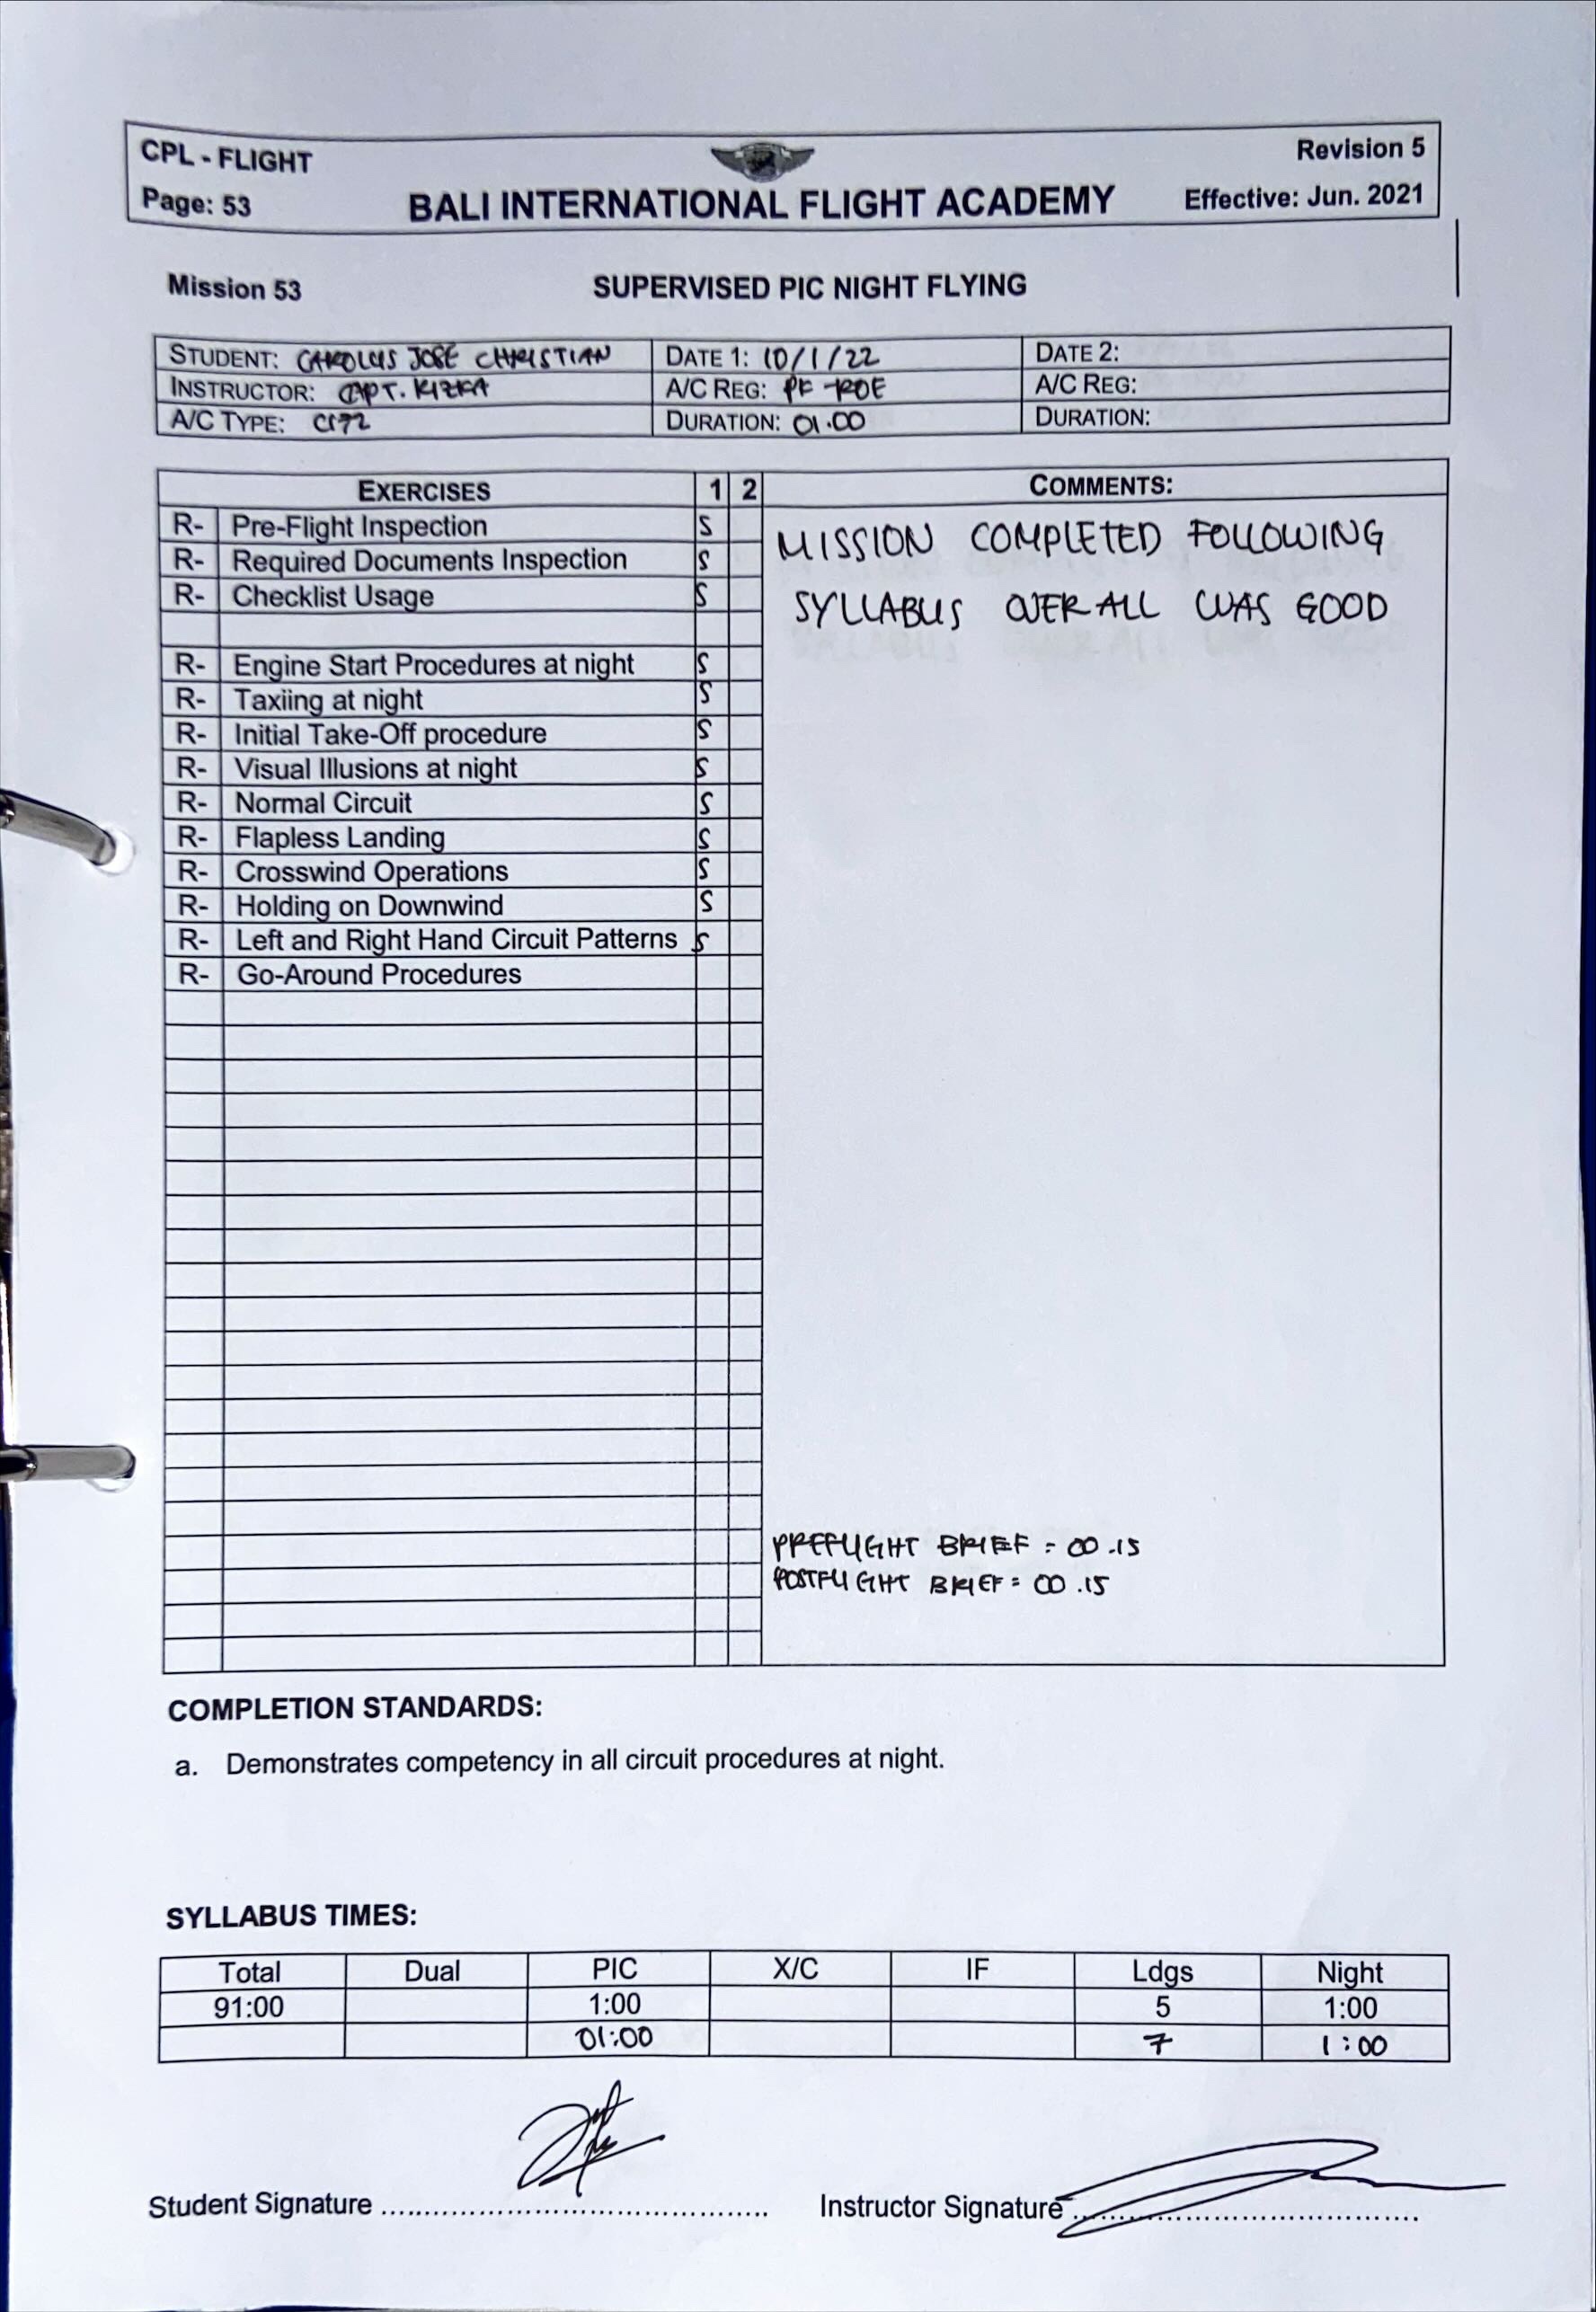 CPL - FLIGHT
Revision 5
Page: 53
BALI INTERNATIONAL FLIGHT ACADEMY
Effective: Jun. 2021
Mission 53 SUPERVISED PIC NIGHT FLYING
STUDENT: CAROLUS JOSE CHRISTIAN DATE 1: 10/1/22 DATE 2:
INSTRUCTOR: CAPT. KIZKA A/C REG: PK ROE A/C REG:
A/C TYPE: C172 DURATION: 01.00 DURATION:
EXERCISES 1 2 COMMENTS:
R- Pre-Flight Inspection S
R- Required Documents Inspection S
R- Checklist Usage S
MISSION COMPLETED FOLLOWING
SYLLABUS OVER ALL WAS GOOD
R- Engine Start Procedures at night S
R- Taxiing at night S
R- Initial Take-Off procedure S
R- Visual Illusions at night S
R- Normal Circuit S
R- Flapless Landing S
R- Crosswind Operations S
R- Holding on Downwind S
R- Left and Right Hand Circuit Patterns S
R- Go-Around Procedures
PREFLIGHT BRIEF = 00.15
POSTFLIGHT BRIEF = 00.15
COMPLETION STANDARDS:
a. Demonstrates competency in all circuit procedures at night.
SYLLABUS TIMES:
Total Dual PIC X/C IF Ldgs Night
91:00 1:00 5 1:00
01:00 7 1:00
Student Signature Instructor Signature